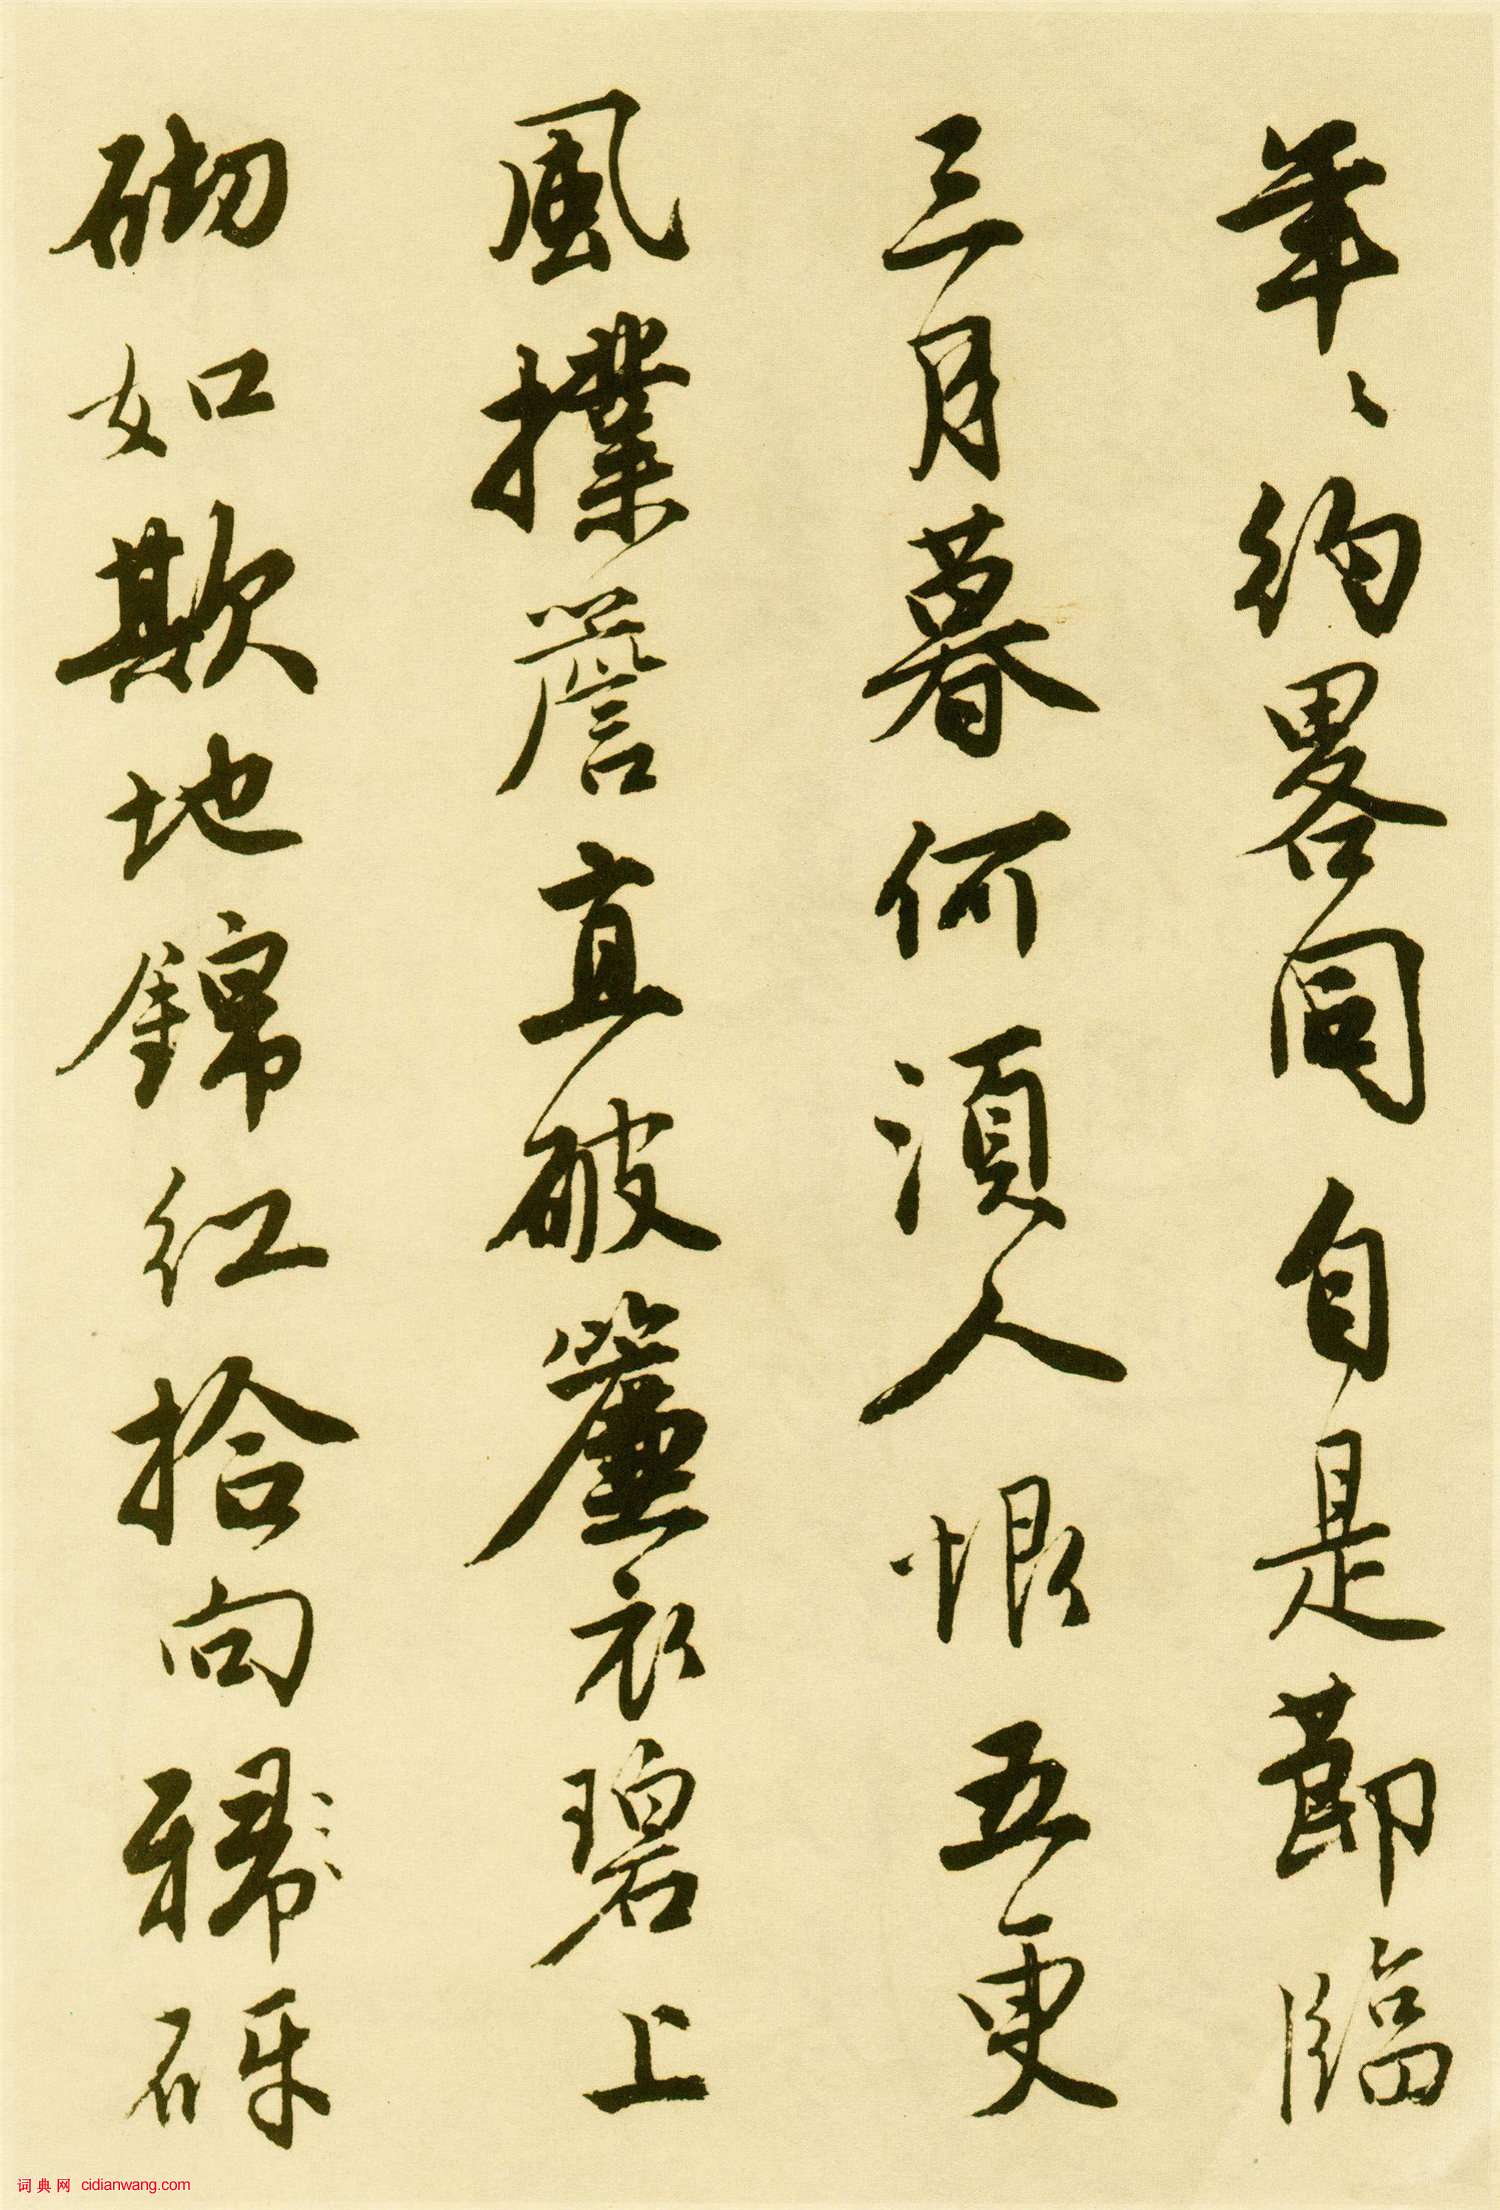 年〻約畧同自是節臨
三月暮何須人恨五更
風撲簷直破簾衣碧上
砌如欺地錦紅拾向稀〻砑
词典网 cidianwang.com